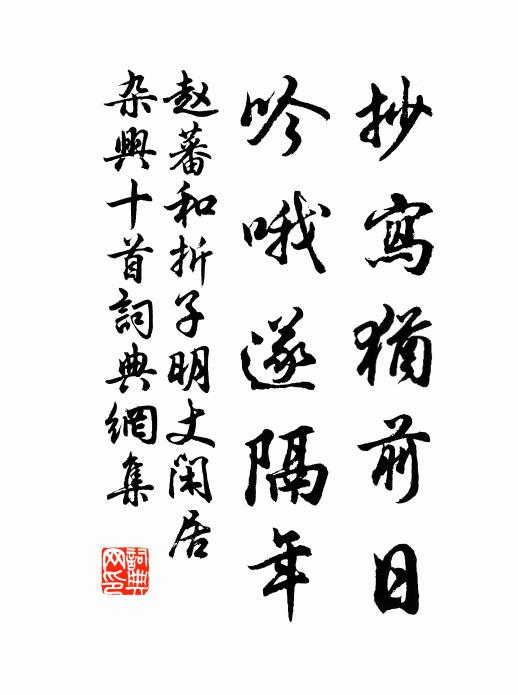 抄寫猶前日
吟哦遂隔年
赵蕃和折子明丈闲居
杂興十首詞典網集
詞典网印